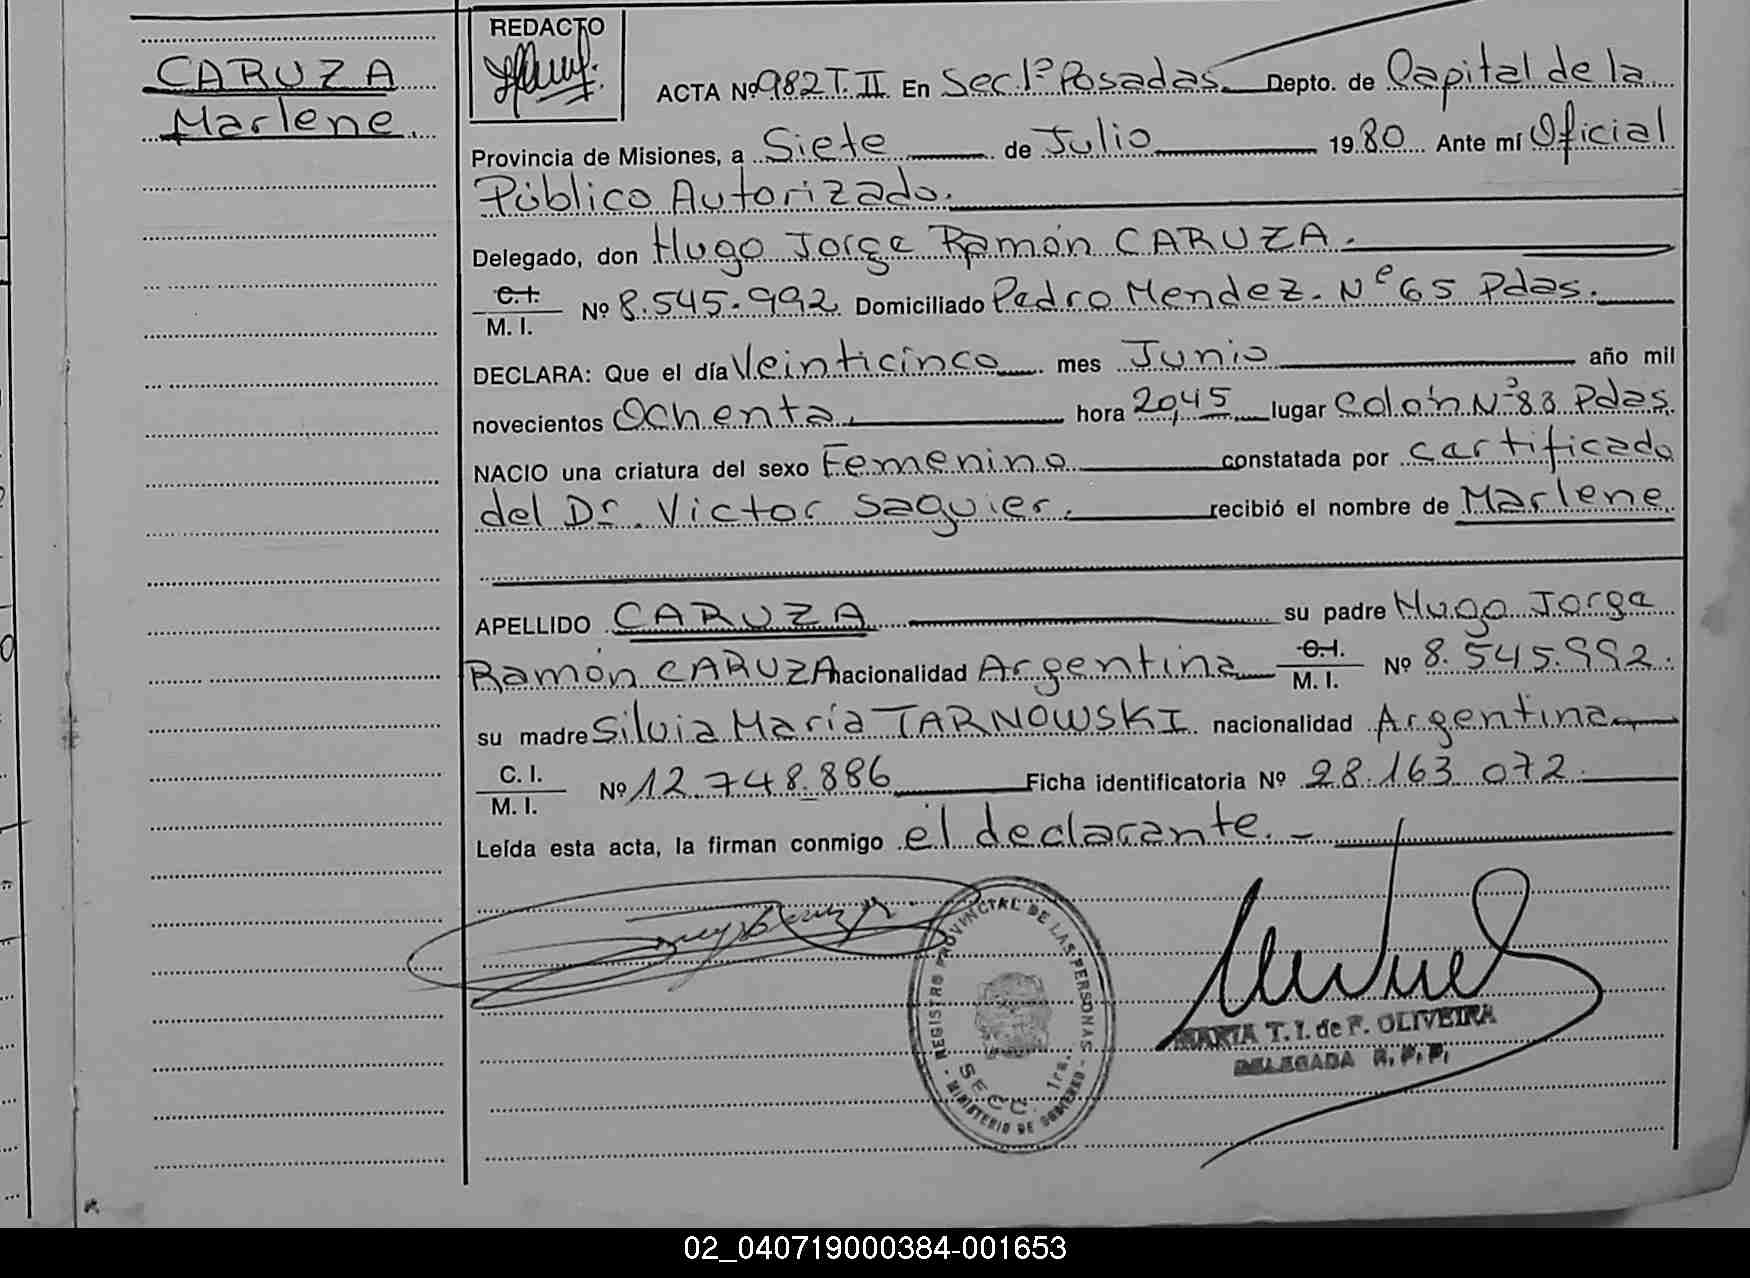 CARUZA
Marlene.
REDACTO
ACTA Nº 982 T. II En Sec. 1ª Posadas. Depto. de Capital de la
Provincia de Misiones, a Siete de Julio 1980. Ante mí Oficial
Público Autorizado.
Delegado, don Hugo Jorge Ramón CARUZA.
C. I.
M. I. Nº 8.545.992 Domiciliado Pedro Mendez. Nº 65 Pdas.
DECLARA: Que el día Veinticinco mes Junio año mil
novecientos Ochenta, hora 20,45 lugar Colón Nº 83 Pdas
NACIO una criatura del sexo Femenino constatada por certificado
del Dr. Victor Saguier. recibió el nombre de Marlene.
APELLIDO CARUZA su padre Hugo Jorge
Ramón CARUZA nacionalidad Argentina C. I.
M. I. Nº 8.545.992.
su madre Silvia María TARNOWSKI nacionalidad Argentina
C. I.
M. I. Nº 12.748.886 Ficha identificatoria Nº 28.163.072.
Leída esta acta, la firman conmigo el declarante. -
REGISTRO PROVINCIAL DE LAS PERSONAS - MINISTERIO DE GOBIERNO -
SECC. 1ra.
MARIA T. I. de F. OLIVEIRA
DELEGADA R. P. P.
02_040719000384-001653